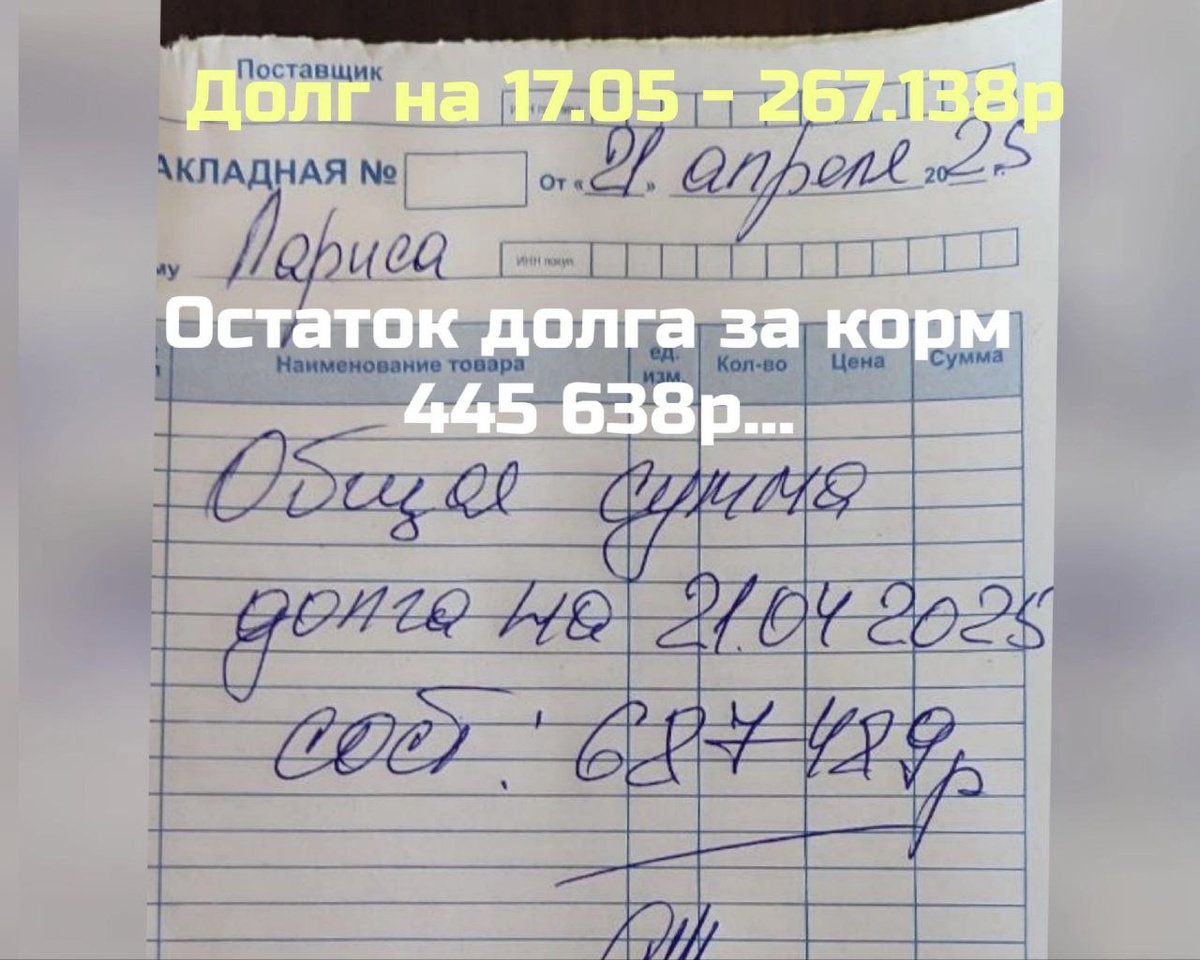 Поставщик
Долг на 17.05 - 267.138р
АКЛАДНАЯ № От « 21 » апреля 2025 г.
му Лариса ИНН покуп.
Остаток долга за корм
Наименование товара ед. изм. Кол-во Цена Сумма
445 638р...
Общая сумма
долга на 21.04 2025
сост: 687 489р